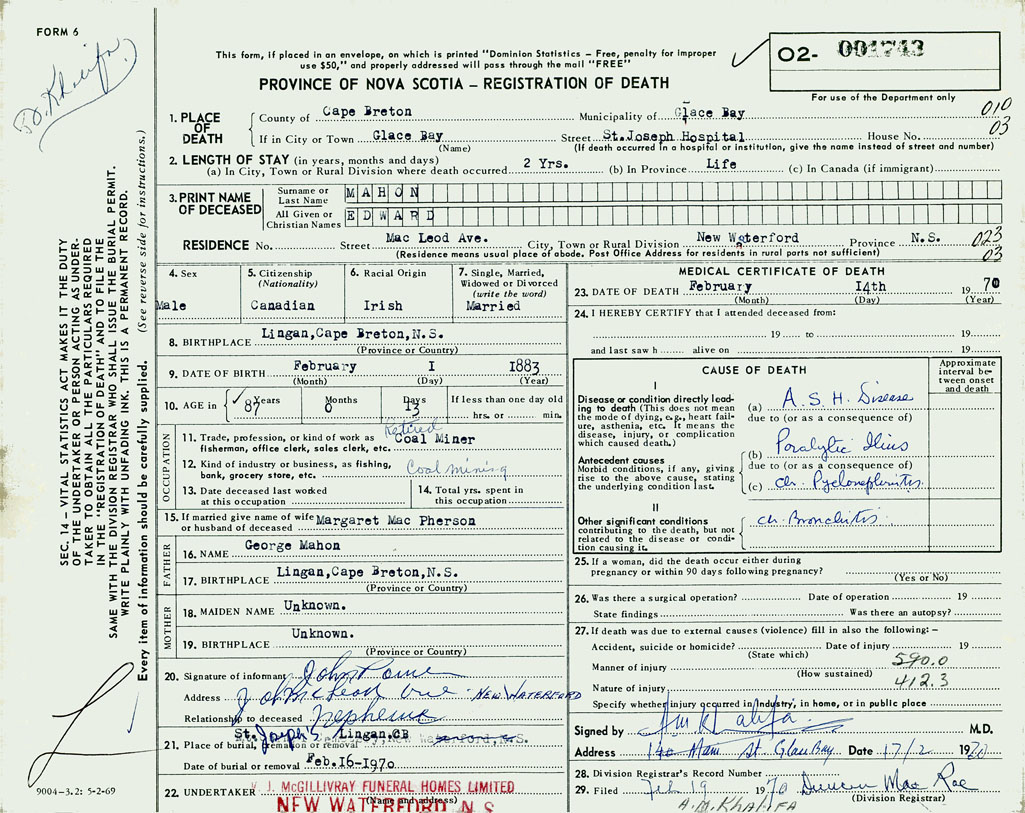 FORM 6
Dr. Khalifa
This form, if placed in an envelope, on which is printed "Dominion Statistics – Free, penalty for improper
use $50," and properly addressed will pass through the mail "FREE"
PROVINCE OF NOVA SCOTIA – REGISTRATION OF DEATH
02- 001743
For use of the Department only
SEC. 14 – VITAL STATISTICS ACT MAKES IT THE DUTY
OF THE UNDERTAKER OR PERSON ACTING AS UNDER-
TAKER TO OBTAIN ALL THE PARTICULARS REQUIRED
IN THE "REGISTRATION OF DEATH" AND TO FILE THE
SAME WITH THE DIVISION REGISTRAR WHO SHALL ISSUE THE BURIAL PERMIT.
WRITE PLAINLY WITH UNFADING INK. THIS IS A PERMANENT RECORD.
Every item of information should be carefully supplied. (See reverse side for instructions.)
1. PLACE OF DEATH
County of Cape Breton Municipality of Glace Bay 010
If in City or Town Glace Bay Street St.Joseph Hospital House No. 03
(Name) (If death occurred in a hospital or institution, give the name instead of street and number)
2. LENGTH OF STAY (in years, months and days)
(a) In City, Town or Rural Division where death occurred 2 Yrs. (b) In Province Life (c) In Canada (if immigrant)
3. PRINT NAME OF DECEASED
Surname or Last Name MAHON
All Given or Christian Names EDWARD
RESIDENCE No. Street Mac Leod Ave. City, Town or Rural Division New Waterford Province N.S. 023
(Residence means usual place of abode. Post Office Address for residents in rural parts not sufficient) 03
4. Sex Male
5. Citizenship (Nationality) Canadian
6. Racial Origin Irish
7. Single, Married, Widowed or Divorced (write the word) Married
8. BIRTHPLACE Lingan,Cape Breton,N.S.
(Province or Country)
9. DATE OF BIRTH February I 1883
(Month) (Day) (Year)
10. AGE in 87 Years 0 Months 13 Days If less than one day old
hrs. or min.
OCCUPATION
11. Trade, profession, or kind of work as fisherman, office clerk, sales clerk, etc. Retired Coal Miner
12. Kind of industry or business, as fishing, bank, grocery store, etc. Coal mining
13. Date deceased last worked at this occupation
14. Total yrs. spent in this occupation
15. If married give name of wife or husband of deceased Margaret Mac Pherson
FATHER
16. NAME George Mahon
17. BIRTHPLACE Lingan,Cape Breton,N.S.
(Province or Country)
MOTHER
18. MAIDEN NAME Unknown.
19. BIRTHPLACE Unknown.
(Province or Country)
20. Signature of informant John
Address McLeod Ave. NEW WATERFORD
Relationship to deceased Nephew
21. Place of burial, cremation or removal St. Joseph's Lingan,CB
Date of burial or removal Feb.16-1970
22. UNDERTAKER V. J. McGILLIVRAY FUNERAL HOMES LIMITED
(Name and address)
NEW WATERFORD, N.S.
9004–3.2: 5-2-69
MEDICAL CERTIFICATE OF DEATH
23. DATE OF DEATH February I4th 19 70
(Month) (Day) (Year)
24. I HEREBY CERTIFY that I attended deceased from:
19 to 19
and last saw h alive on 19
CAUSE OF DEATH
Approximate interval between onset and death
I
Disease or condition directly leading to death (This does not mean the mode of dying, e.g., heart failure, asthenia, etc. It means the disease, injury, or complication which caused death.)
(a) A.S.H. Disease
due to (or as a consequence of)
Antecedent causes
Morbid conditions, if any, giving rise to the above cause, stating the underlying condition last.
(b) Paralytic Ilius
due to (or as a consequence of)
(c) Ch. Pyelonephritis
II
Other significant conditions
contributing to the death, but not related to the disease or condition causing it.
Ch. Bronchitis
25. If a woman, did the death occur either during pregnancy or within 90 days following pregnancy?
(Yes or No)
26. Was there a surgical operation? Date of operation 19
State findings Was there an autopsy?
27. If death was due to external causes (violence) fill in also the following: –
Accident, suicide or homicide? Date of injury 19
(State which) 590.0
Manner of injury
(How sustained)
412.3
Nature of injury
Specify whether injury occurred in Industry, in home, or in public place
Signed by AM Khalifa M.D.
Address Main St Glace Bay Date 17/2 1970
28. Division Registrar's Record Number
29. Filed Feb 19 1970 Duncan Mac Rae
(Division Registrar)
A.M.KHALIFA